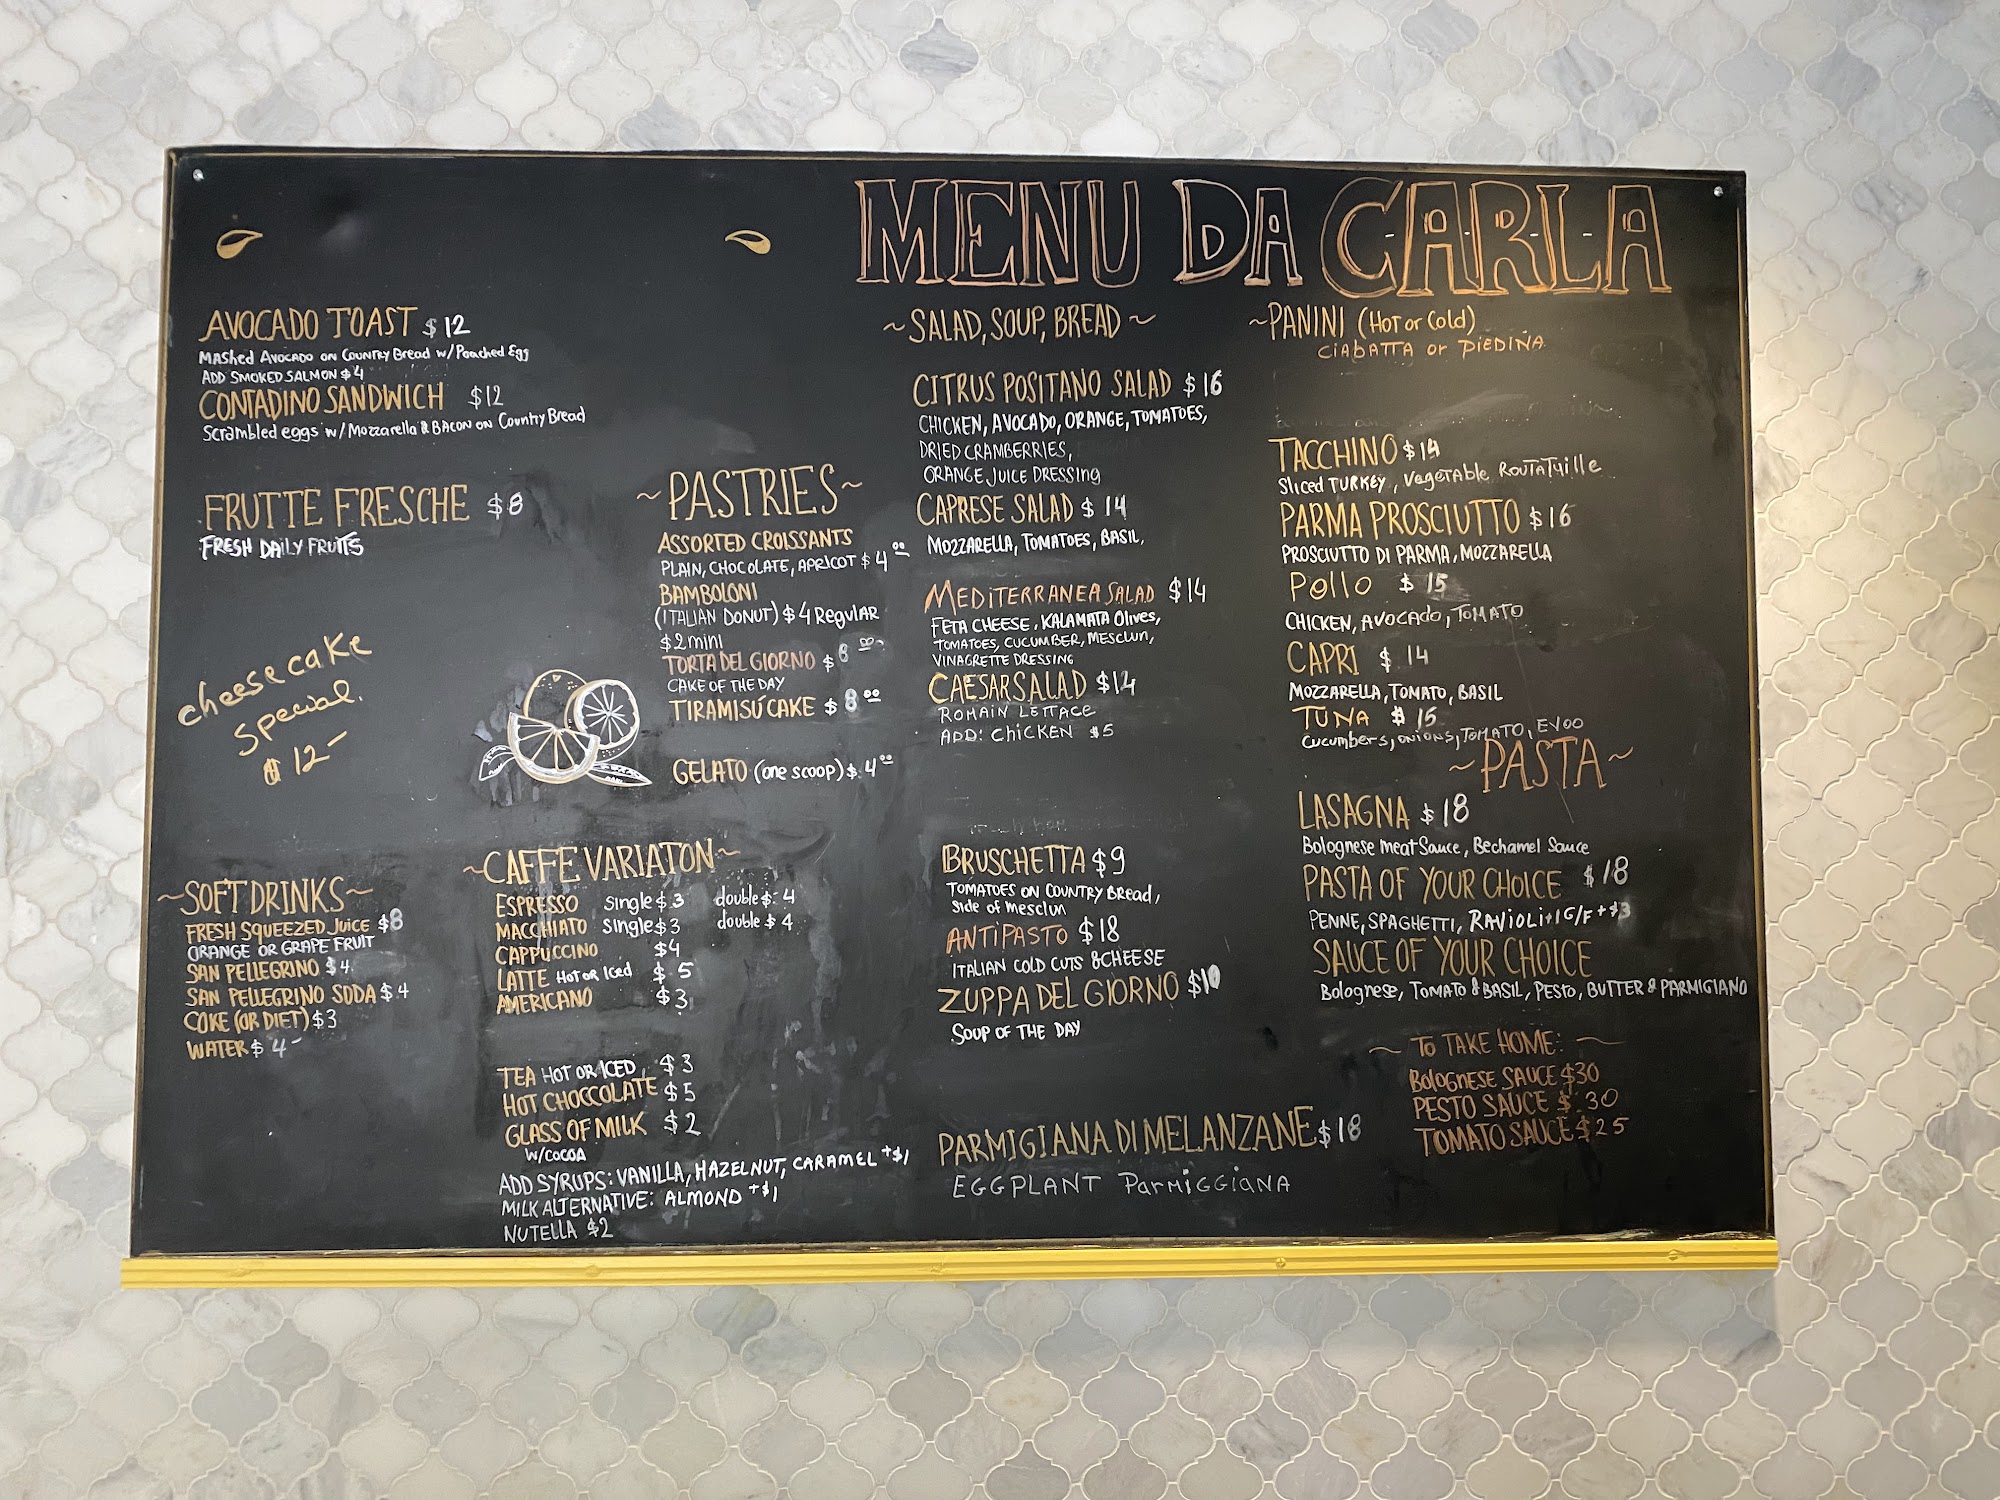 MENU DA CARLA
AVOCADO TOAST $12
MASHED AVOCADO ON COUNTRY BREAD W/ POACHED EGG
ADD SMOKED SALMON $4
CONTADINO SANDWICH $12
SCRAMBLED EGGS W/ MOZZARELLA & BACON ON COUNTRY BREAD
FRUTTE FRESCHE $8
FRESH DAILY FRUITS
cheesecake
special.
$12-
~SOFT DRINKS~
FRESH SQUEEZED JUICE $8
ORANGE OR GRAPE FRUIT
SAN PELLEGRINO $4
SAN PELLEGRINO SODA $4
COKE (OR DIET) $3
WATER $4-
~PASTRIES~
ASSORTED CROISSANTS
PLAIN, CHOCOLATE, APRICOT $4.00
BAMBOLONI
(ITALIAN DONUT) $4 REGULAR
$2 mini
TORTA DEL GIORNO $8.00
CAKE OF THE DAY
TIRAMISÚ CAKE $8.00
GELATO (one scoop) $.4.00
~CAFFE VARIATON~
ESPRESSO single $.3 double $.4
MACCHIATO single $3 double $4
CAPPUCCINO $4
LATTE HOT OR Iced $.5
AMERICANO $3
TEA HOT OR ICED, $3
HOT CHOCCOLATE $5
GLASS OF MILK $2
W/COCOA
ADD SYRUPS: VANILLA, HAZELNUT, CARAMEL +$1
MILK ALTERNATIVE: ALMOND +$1
NUTELLA $2
~SALAD, SOUP, BREAD~
CITRUS POSITANO SALAD $16
CHICKEN, AVOCADO, ORANGE, TOMATOES,
DRIED CRAMBERRIES,
ORANGE JUICE DRESSING
CAPRESE SALAD $14
MOZZARELLA, TOMATOES, BASIL,
MEDITERRANEA SALAD $14
FETA CHEESE, KALAMATA Olives,
TOMATOES, CUCUMBER, MESCLUN,
VINAGRETTE DRESSING
CAESAR SALAD $14
ROMAIN LETTACE
ADD: CHICKEN $5
BRUSCHETTA $9
TOMATOES ON COUNTRY BREAD,
side of mesclun
ANTIPASTO $18
ITALIAN COLD CUTS & CHEESE
ZUPPA DEL GIORNO $10
SOUP OF THE DAY
PARMIGIANA DI MELANZANE $18
EGGPLANT PARMIGGIANA
~PANINI (HOT or Cold)
CIABATTA or PIEDINA
TACCHINO $14
Sliced TURKEY, VegeTAble ROUTATUille
PARMA PROSCIUTTO $16
PROSCIUTTO DI PARMA, MOZZARELLA
Pollo $15
CHICKEN, AVOCADO, TOMATO
CAPRI $.14
MOZZARELLA, TOMATO, BASIL
TUNA $15
Cucumbers, onions, TOMATO, EVOO
~PASTA~
LASAGNA $18
Bolognese meat Sauce, Bechamel Sauce
PASTA OF YOUR CHOICE $18
PENNE, SPAGHETTI, RAVIOLI+1 G/F +$3
SAUCE OF YOUR CHOICE
Bolognese, TOMATO & BASIL, PESTO, BUTTER & PARMIGIANO
~ TO TAKE HOME: ~
BOLOGNESE SAUCE $30
PESTO SAUCE $.30
TOMATO SAUCE $25